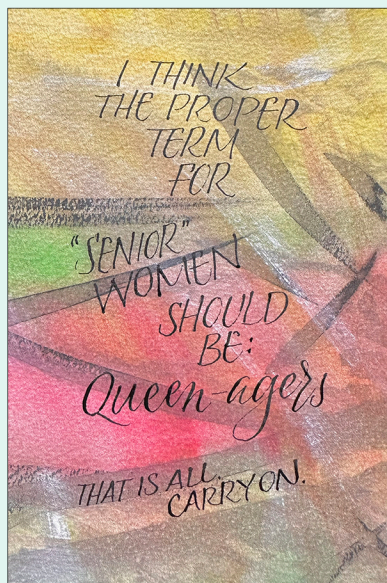 I THINK
THE PROPER
TERM
FOR
"SENIOR"
WOMEN
SHOULD
BE:
Queen-agers
THAT IS ALL.
CARRY ON.